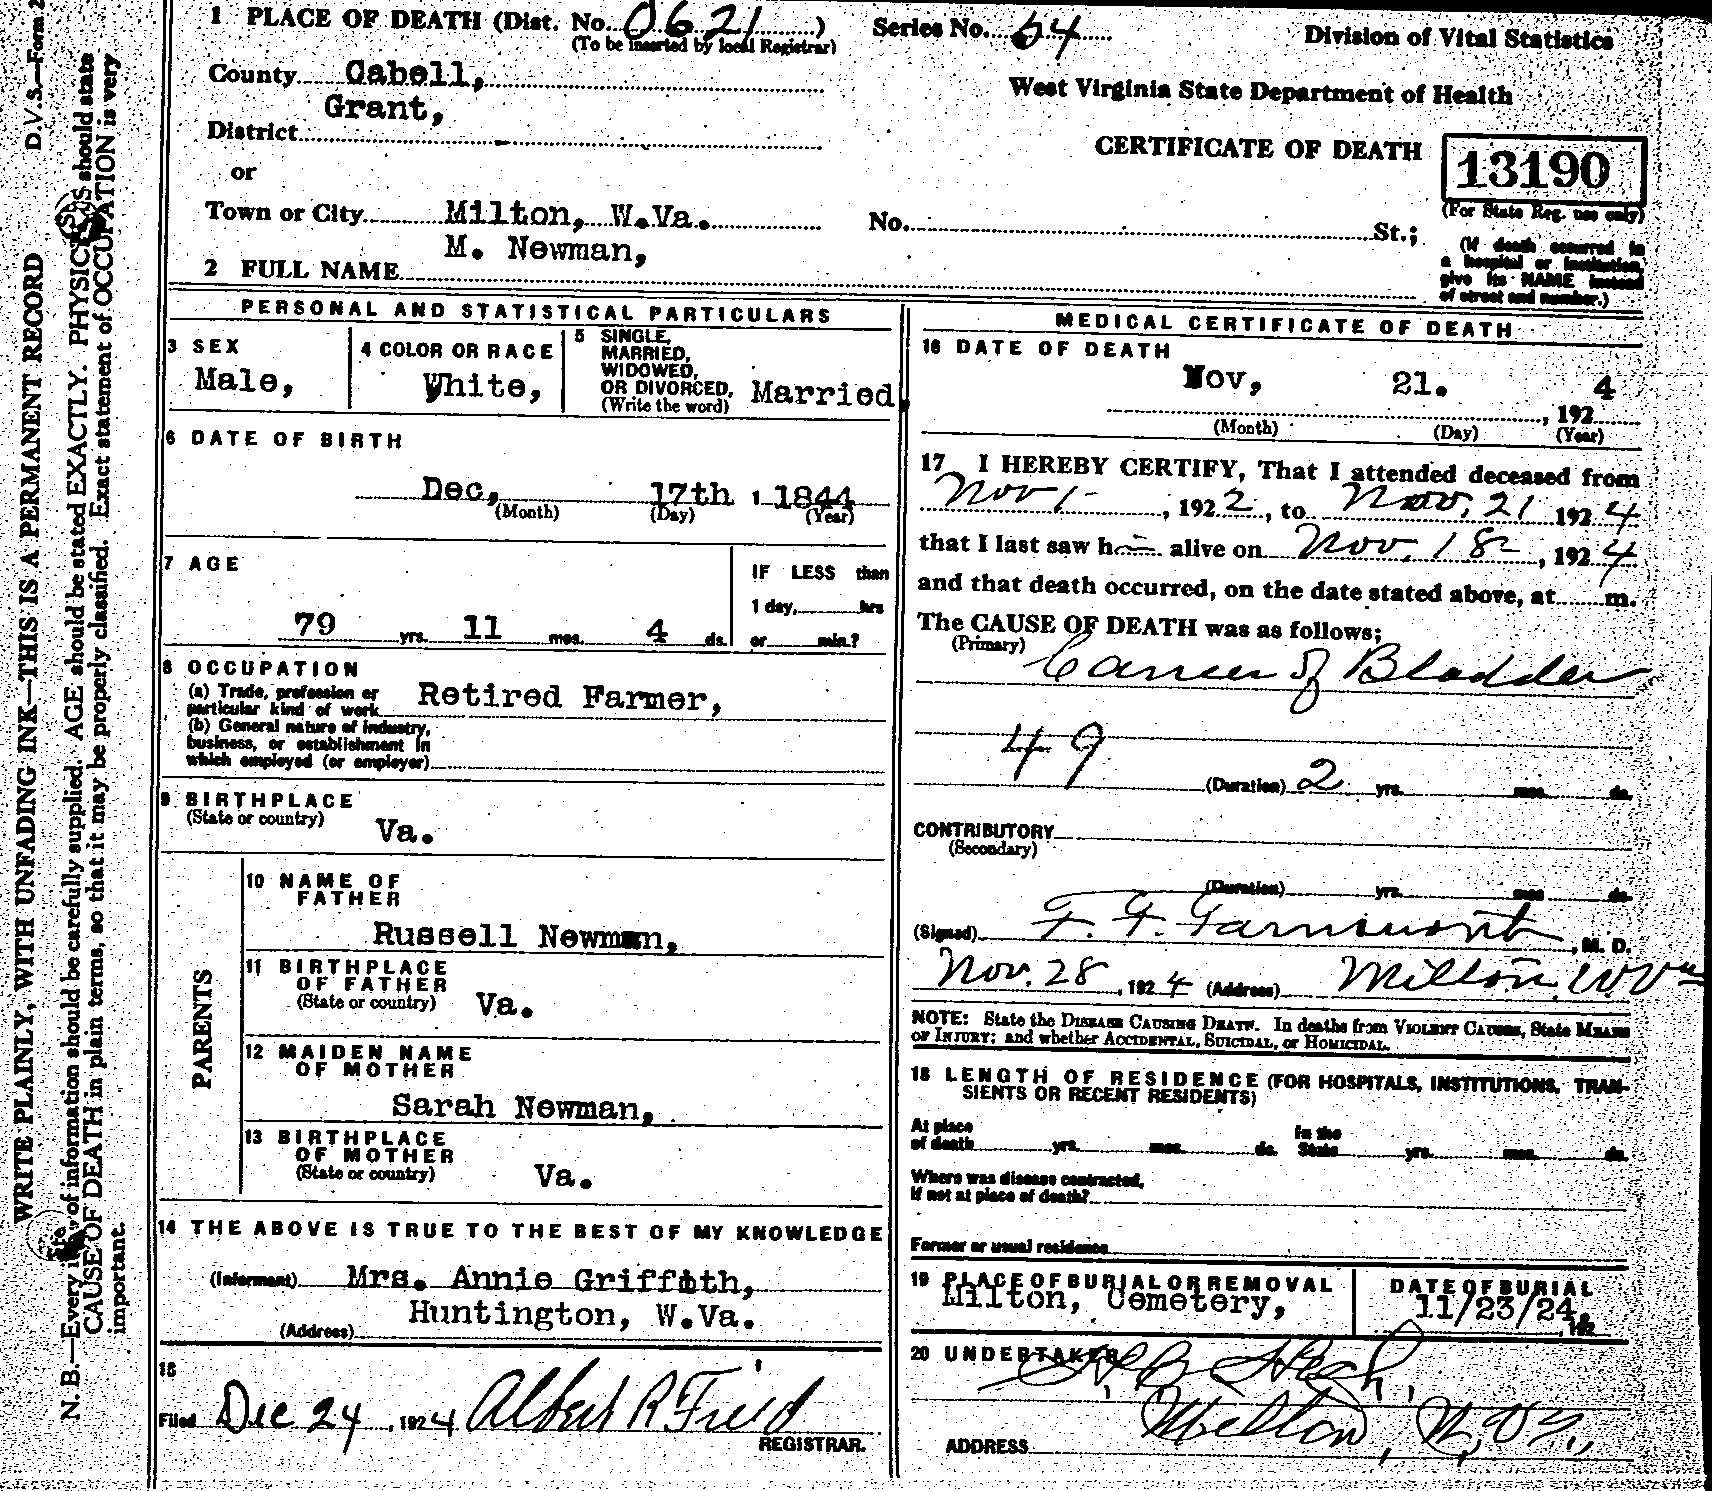 D.V.S.—Form 2
WRITE PLAINLY, WITH UNFADING INK—THIS IS A PERMANENT RECORD
N. B.—Every of information should be carefully supplied. AGE should be stated EXACTLY. PHYSICIANS should state
CAUSE OF DEATH in plain terms, so that it may be properly classified. Exact statement of OCCUPATION is very
important.
1 PLACE OF DEATH (Dist. No. 0621) Series No. 54 Division of Vital Statistics
(To be inserted by local Registrar)
County Cabell, West Virginia State Department of Health
Grant,
District
CERTIFICATE OF DEATH 13190
or
(For State Reg. use only)
Town or City Milton, W.Va. No. St.;
(If death occurred in
a hospital or institution,
give its NAME instead
of street and number.)
M. Newman,
2 FULL NAME
PERSONAL AND STATISTICAL PARTICULARS
3 SEX
Male,
4 COLOR OR RACE
White,
5 SINGLE,
MARRIED,
WIDOWED,
OR DIVORCED, Married,
(Write the word)
6 DATE OF BIRTH
Dec, 17th , 1844
(Month) (Day) (Year)
7 AGE
79 yrs. 11 mos. 4 ds.
IF LESS than
1 day, hrs
or min.?
8 OCCUPATION
(a) Trade, profession or
particular kind of work Retired Farmer,
(b) General nature of industry,
business, or establishment in
which employed (or employer)
9 BIRTHPLACE
(State or country) Va.
PARENTS
10 NAME OF
FATHER
Russell Newman,
11 BIRTHPLACE
OF FATHER
(State or country) Va.
12 MAIDEN NAME
OF MOTHER
Sarah Newman,
13 BIRTHPLACE
OF MOTHER
(State or country) Va.
14 THE ABOVE IS TRUE TO THE BEST OF MY KNOWLEDGE
(Informant) Mrs. Annie Griffith,
Huntington, W.Va.
(Address)
15
Filed Dec 24, 1924 Albert R Field
REGISTRAR.
MEDICAL CERTIFICATE OF DEATH
16 DATE OF DEATH
Nov, 21. 4
, 192
(Month) (Day) (Year)
17 I HEREBY CERTIFY, That I attended deceased from
Nov 1- , 1922, to Nov. 21 1924
that I last saw him alive on Nov. 18 , 1924
and that death occurred, on the date stated above, at m.
The CAUSE OF DEATH was as follows;
(Primary) Cancer of Bladder
49
(Duration) 2 yrs. mos. ds.
CONTRIBUTORY
(Secondary)
(Duration) yrs. mos. ds.
(Signed) , M. D.
Nov. 28 , 1924 (Address) Milton W Va
NOTE: State the DISEASE CAUSING DEATH. In deaths from VIOLENT CAUSES, State MEANS
OF INJURY; and whether ACCIDENTAL, SUICIDAL, or HOMICIDAL.
18 LENGTH OF RESIDENCE (FOR HOSPITALS, INSTITUTIONS, TRAN-
SIENTS OR RECENT RESIDENTS)
At place
of death yrs. mos. ds.
In the
State yrs. mos. ds.
Where was disease contracted,
If not at place of death?
Former or usual residence
19 PLACE OF BURIAL OR REMOVAL
Milton, Cemetery,
DATE OF BURIAL
11/23/24,
, 192
20 UNDERTAKER
Milton, W, Va.,
ADDRESS